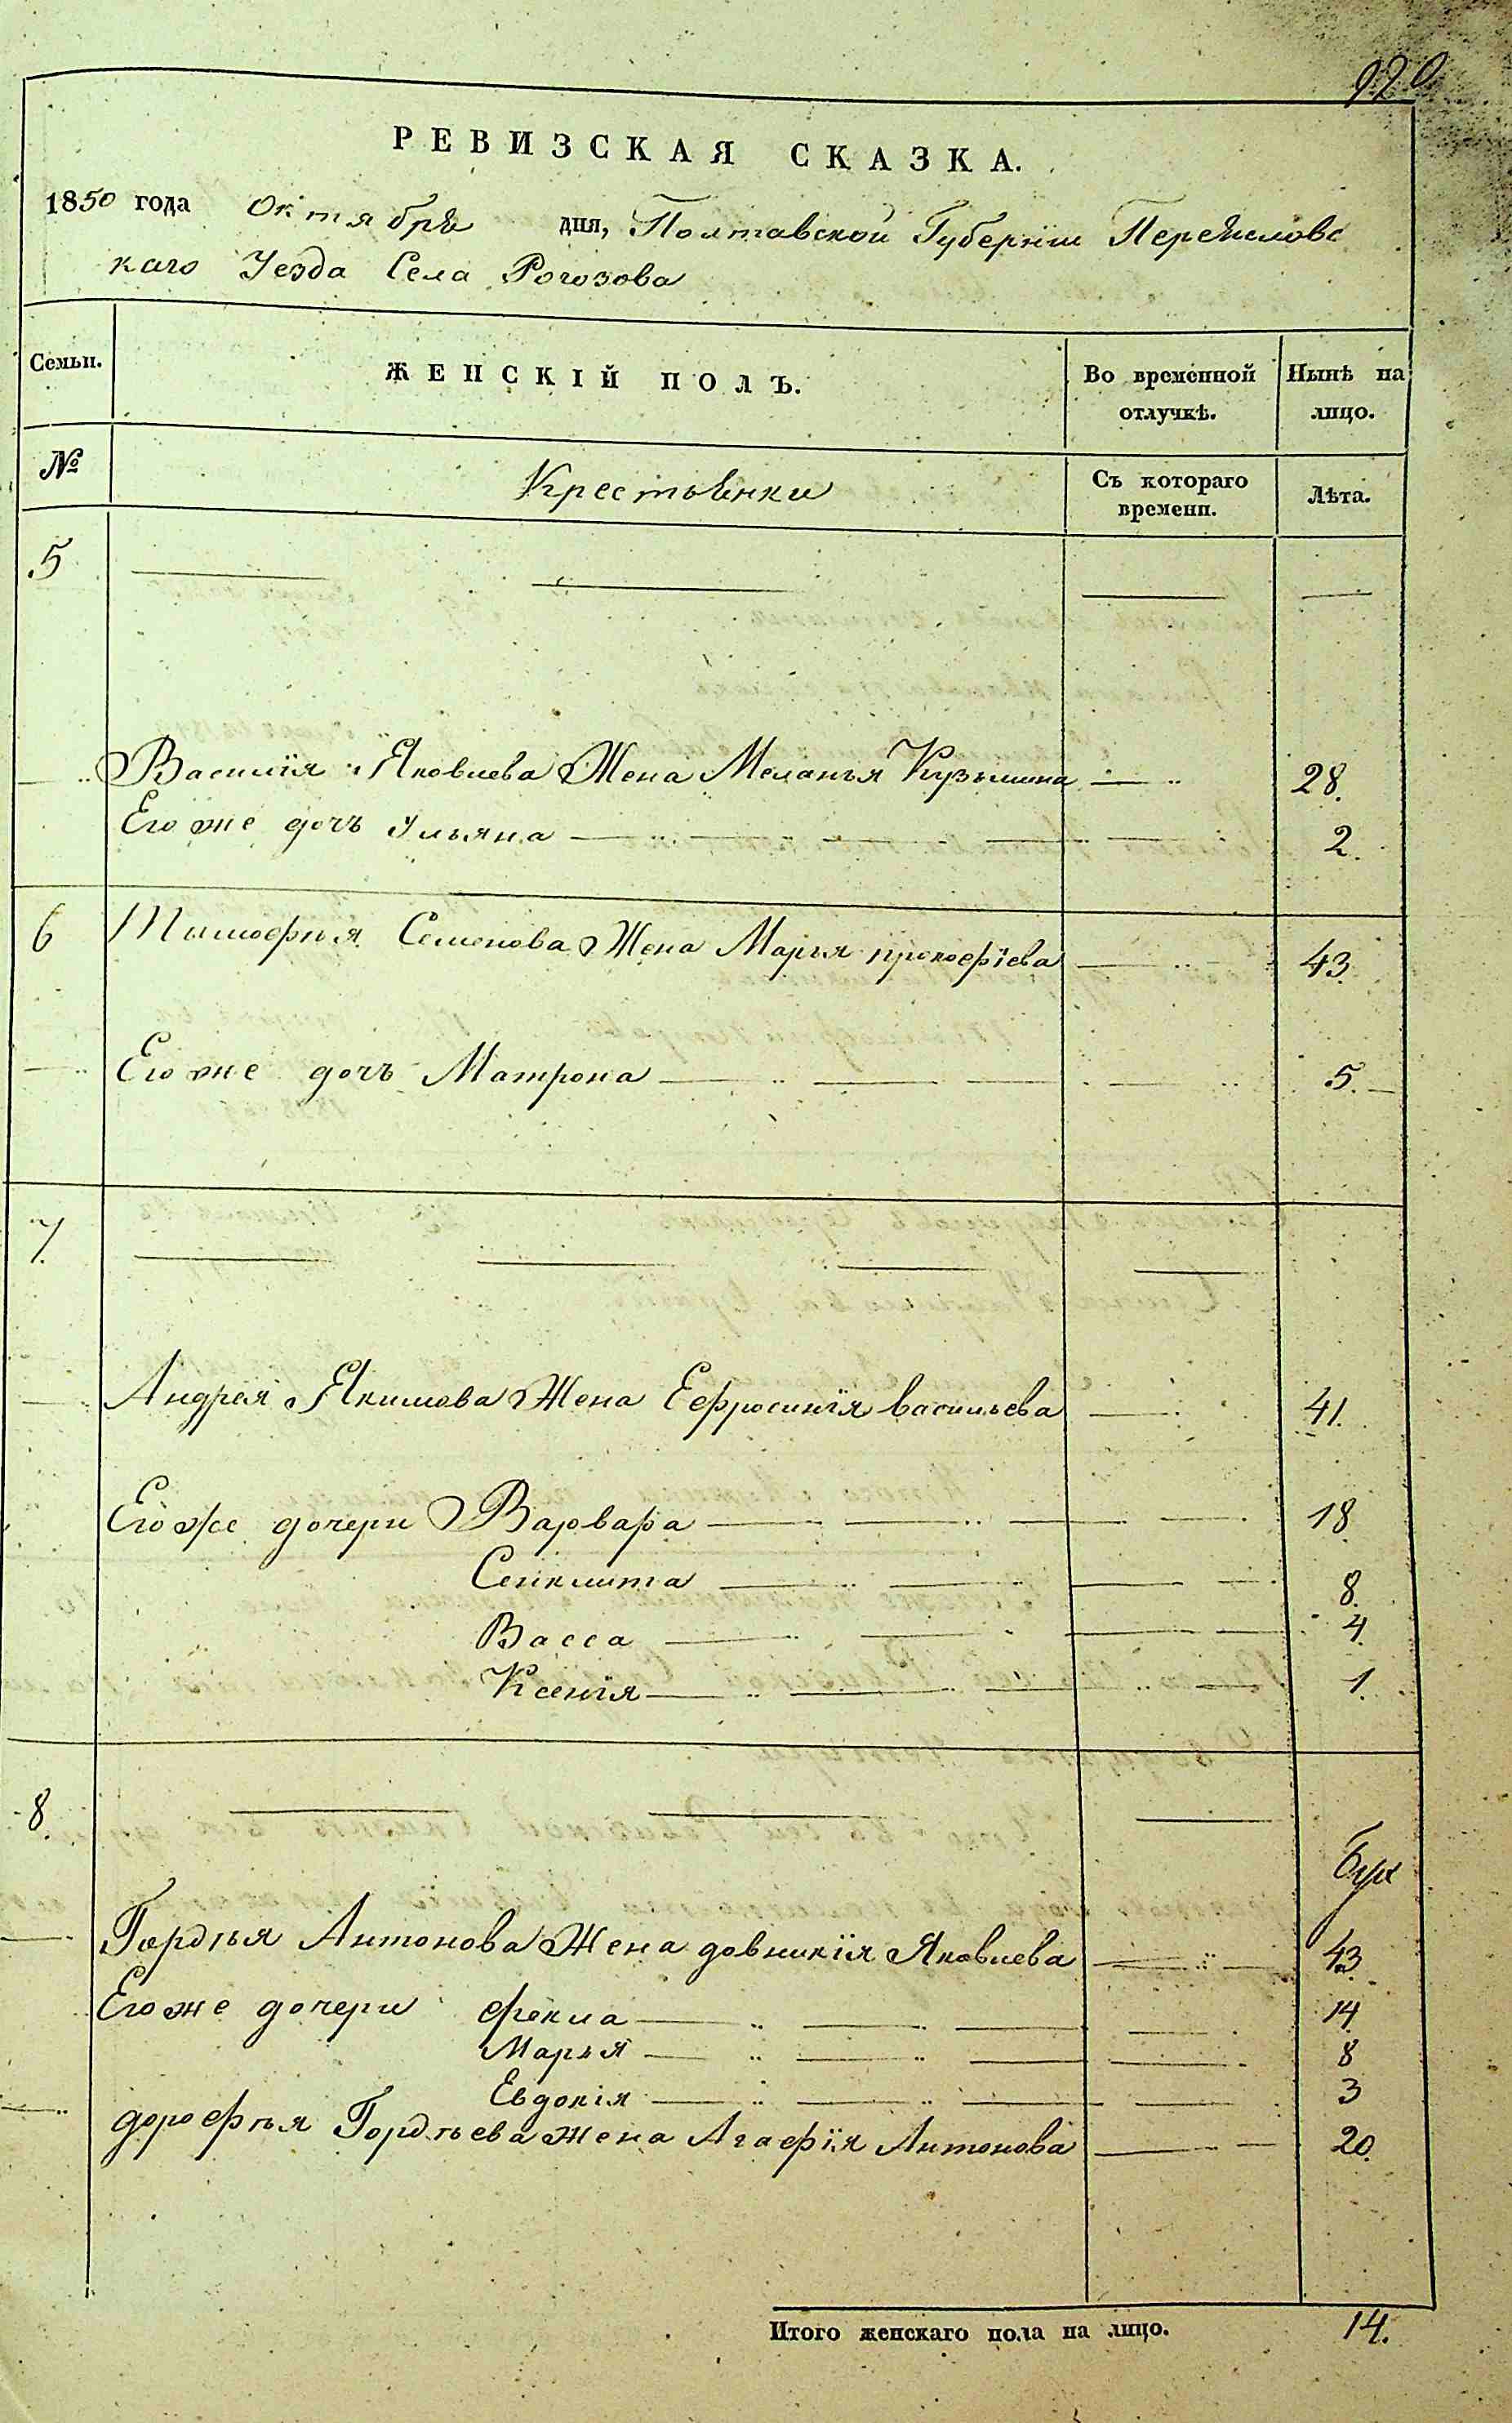 920
РЕВИЗСКАЯ СКАЗКА.
1850 года Октября дня, Полтавской Губернии Переяславс
каго Уезда Села Рогозова
Семьи. ЖЕНСКІЙ ПОЛЪ. Во временной отлучкѣ. Нынѣ на лицо.
№ Крестьянки Съ котораго времени. Лѣта.
5
Василія Яковлева Жена Меланья Кузьмина 28.
Его же дочъ Ульяна 2.
6 Тимофѣя Семенова Жена Марья прокофіева 43
Его же дочъ Матрона 5.
7.
Андрея Якимова Жена Еефросинія васильева 41.
Его же дочери Варвара 18
Сенклита 8.
Васса 4.
Ксенія 1.
8.
Гордѣя Антонова Жена довникія Яковлева 43.
Его же дочери фекла 14.
Марья 8
Евдокія 3
дорофѣя Гордѣева жена Агафія Антонова 20.
Итого женскаго пола на лицо. 14.